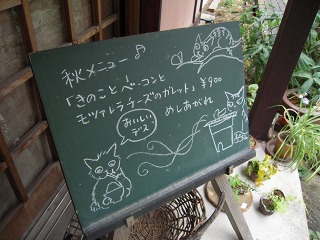 秋メニュー♪
「きのことベーコンと
モツァレラチーズのガレット」¥900
めしあがれ
おいしい
デス